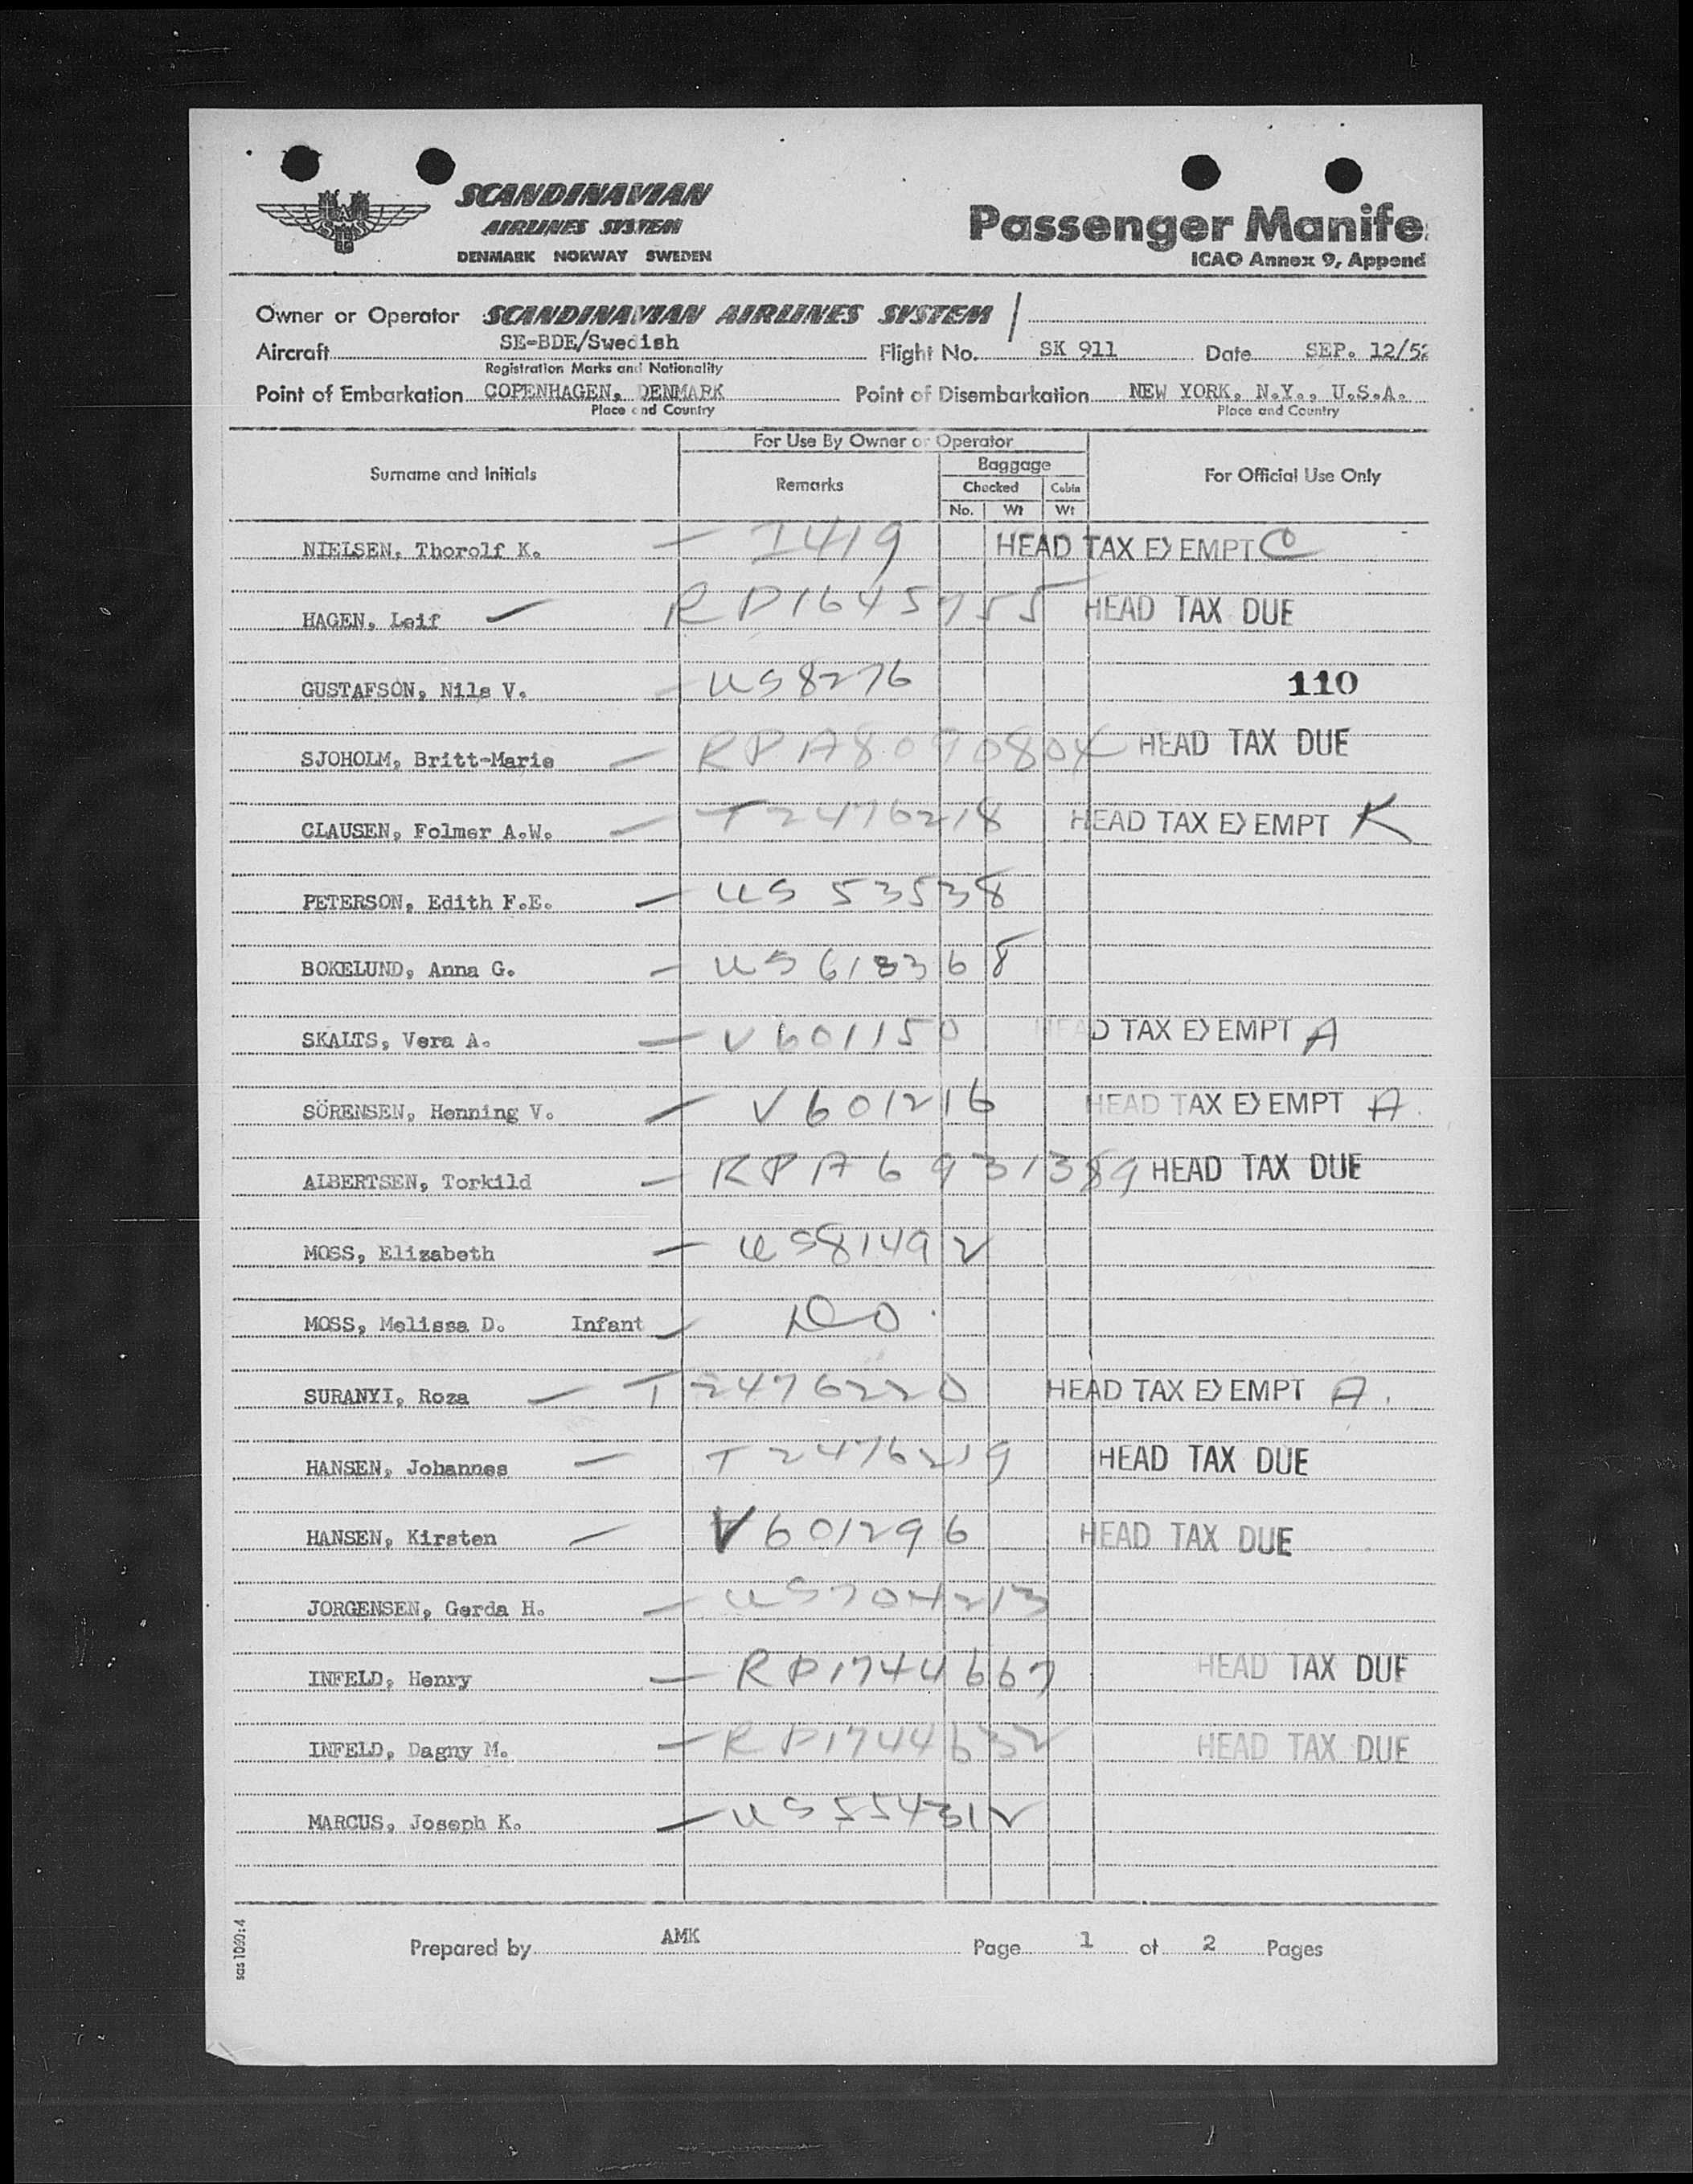 SCANDINAVIAN
AIRLINES SYSTEM
DENMARK NORWAY SWEDEN
SAS
Passenger Manife
ICAO Annex 9, Append
Owner or Operator SCANDINAVIAN AIRLINES SYSTEM /
Aircraft SE-BDE/Swedish Flight No. SK 911 Date SEP. 12/52
Registration Marks and Nationality
Point of Embarkation COPENHAGEN, DENMARK Point of Disembarkation NEW YORK, N.Y., U.S.A.
Place and Country Place and Country
For Use By Owner or Operator
Surname and Initials Remarks Baggage For Official Use Only
Checked Cabin
No. Wt Wt
NIELSEN, Thorolf K. — I419 HEAD TAX EXEMPT C
HAGEN, Leif RP1645755 HEAD TAX DUE
GUSTAFSON, Nils V. — US8276 110
SJOHOLM, Britt-Marie — RPA8090804 HEAD TAX DUE
CLAUSEN, Folmer A.W. — T2476218 HEAD TAX EXEMPT K
PETERSON, Edith F.E. — US 53538
BOKELUND, Anna G. — US618368
SKALTS, Vera A. — V601150 HEAD TAX EXEMPT A
SÖRENSEN, Henning V. — V601216 HEAD TAX EXEMPT A
ALBERTSEN, Torkild — RPA6931389 HEAD TAX DUE
MOSS, Elizabeth — US81492
MOSS, Melissa D. Infant — DO
SURANYI, Roza — T2476220 HEAD TAX EXEMPT A.
HANSEN, Johannes — T2476219 HEAD TAX DUE
HANSEN, Kirsten — V601296 HEAD TAX DUE
JORGENSEN, Gerda H. — US704213
INFELD, Henry — RP1744667 HEAD TAX DUE
INFELD, Dagny M. — RP1744632 HEAD TAX DUE
MARCUS, Joseph K. — US554312
sas 1060:4
Prepared by AMK Page 1 of 2 Pages